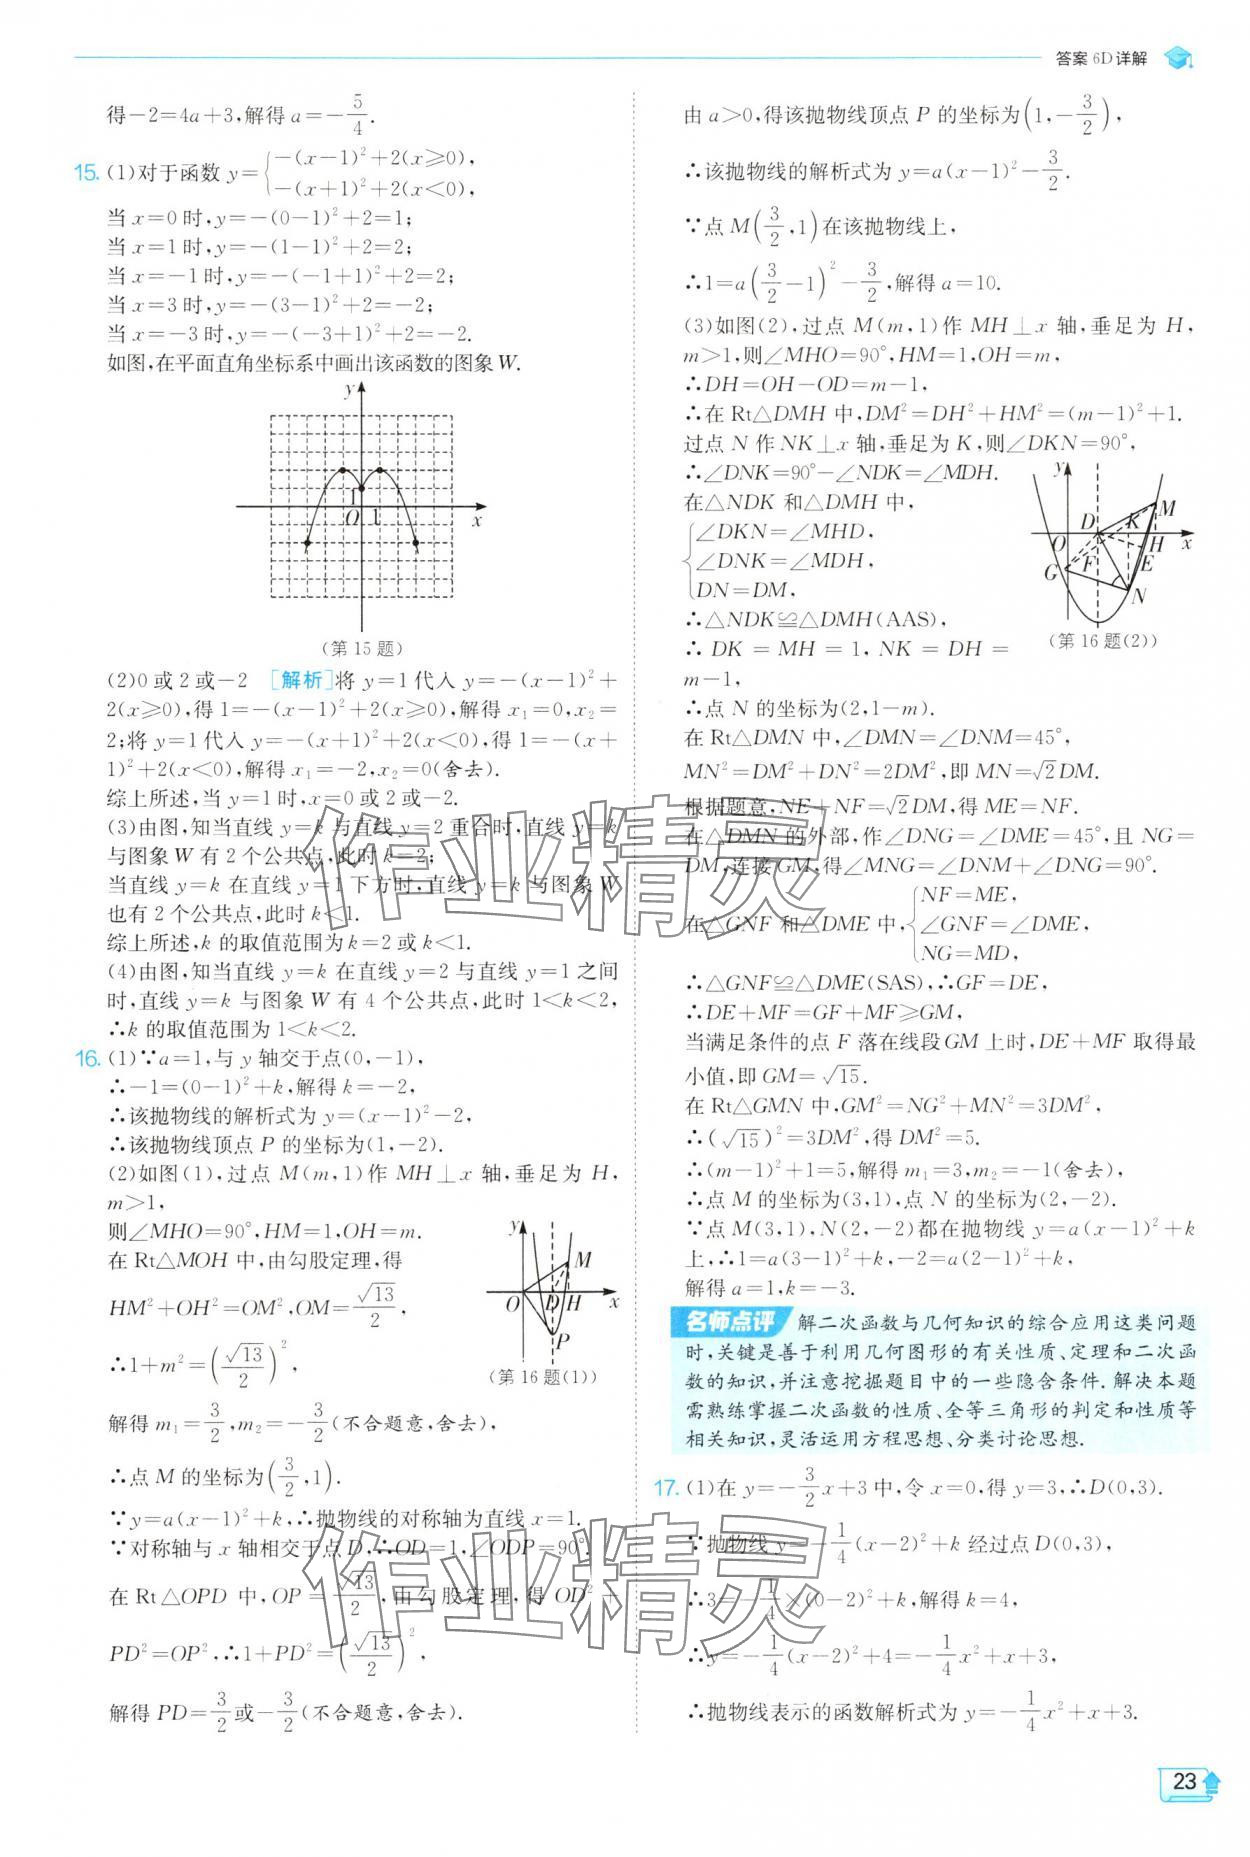 答案 6D 详解
得-2=4a+3,解得 a=-5/4.
15. (1)对于函数 y={-(x-1)²+2(x≥0), -(x+1)²+2(x<0),
当 x=0 时,y=-(0-1)²+2=1;
当 x=1 时,y=-(1-1)²+2=2;
当 x=-1 时,y=-(-1+1)²+2=2;
当 x=3 时,y=-(3-1)²+2=-2;
当 x=-3 时,y=-(-3+1)²+2=-2.
如图,在平面直角坐标系中画出该函数的图象 W.
y
1
O 1 x
(第 15 题)
(2)0 或 2 或-2 [解析]将 y=1 代入 y=-(x-1)²+
2(x≥0),得 1=-(x-1)²+2(x≥0),解得 x₁=0,x₂=
2;将 y=1 代入 y=-(x+1)²+2(x<0),得 1=-(x+
1)²+2(x<0),解得 x₁=-2,x₂=0(舍去).
综上所述,当 y=1 时,x=0 或 2 或-2.
(3)由图,知当直线 y=k 与直线 y=2 重合时,直线 y=k
与图象 W 有 2 个公共点,此时 k=2;
当直线 y=k 在直线 y=1 下方时,直线 y=k 与图象 W
也有 2 个公共点,此时 k<1.
综上所述,k 的取值范围为 k=2 或 k<1.
(4)由图,知当直线 y=k 在直线 y=2 与直线 y=1 之间
时,直线 y=k 与图象 W 有 4 个公共点,此时 1<k<2,
∴k 的取值范围为 1<k<2.
16. (1)∵a=1,与 y 轴交于点(0,-1),
∴-1=(0-1)²+k,解得 k=-2,
∴该抛物线的解析式为 y=(x-1)²-2,
∴该抛物线顶点 P 的坐标为(1,-2).
(2)如图(1),过点 M(m,1)作 MH⊥x 轴,垂足为 H,
m>1,
则∠MHO=90°,HM=1,OH=m.
在 Rt△MOH 中,由勾股定理,得
HM²+OH²=OM²,OM=√13/2,
∴1+m²=(√13/2)²,
y
M
O D H x
P
(第 16 题(1))
解得 m₁=3/2,m₂=-3/2(不合题意,舍去),
∴点 M 的坐标为(3/2,1).
∵y=a(x-1)²+k,∴抛物线的对称轴为直线 x=1.
∵对称轴与 x 轴相交于点 D,∴OD=1,∠ODP=90°.
在 Rt△OPD 中,OP=√13/2,由勾股定理,得 OD²+
PD²=OP²,∴1+PD²=(√13/2)²,
解得 PD=3/2或-3/2(不合题意,舍去).
由 a>0,得该抛物线顶点 P 的坐标为(1,-3/2),
∴该抛物线的解析式为 y=a(x-1)²-3/2.
∵点 M(3/2,1)在该抛物线上,
∴1=a(3/2-1)²-3/2,解得 a=10.
(3)如图(2),过点 M(m,1)作 MH⊥x 轴,垂足为 H,
m>1,则∠MHO=90°,HM=1,OH=m,
∴DH=OH-OD=m-1,
∴在 Rt△DMH 中,DM²=DH²+HM²=(m-1)²+1.
过点 N 作 NK⊥x 轴,垂足为 K,则∠DKN=90°,
∴∠DNK=90°-∠NDK=∠MDH.
在△NDK 和△DMH 中,
{∠DKN=∠MHD,
∠DNK=∠MDH,
DN=DM,
∴△NDK≌△DMH(AAS),
∴DK=MH=1,NK=DH=
m-1,
y
D K M
O H x
G F E
N
(第 16 题(2))
∴点 N 的坐标为(2,1-m).
在 Rt△DMN 中,∠DMN=∠DNM=45°,
MN²=DM²+DN²=2DM²,即 MN=√2DM.
根据题意,NE+NF=√2DM,得 ME=NF.
在△DMN 的外部,作∠DNG=∠DME=45°,且 NG=
DM,连接 GM,得∠MNG=∠DNM+∠DNG=90°.
在△GNF 和△DME 中,{NF=ME, ∠GNF=∠DME, NG=MD,
∴△GNF≌△DME(SAS),∴GF=DE,
∴DE+MF=GF+MF≥GM,
当满足条件的点 F 落在线段 GM 上时,DE+MF 取得最
小值,即 GM=√15.
在 Rt△GMN 中,GM²=NG²+MN²=3DM²,
∴(√15)²=3DM²,得 DM²=5.
∴(m-1)²+1=5,解得 m₁=3,m₂=-1(舍去),
∴点 M 的坐标为(3,1),点 N 的坐标为(2,-2).
∵点 M(3,1),N(2,-2)都在抛物线 y=a(x-1)²+k
上,∴1=a(3-1)²+k,-2=a(2-1)²+k,
解得 a=1,k=-3.
名师点评 解二次函数与几何知识的综合应用这类问题
时,关键是善于利用几何图形的有关性质、定理和二次函
数的知识,并注意挖掘题目中的一些隐含条件.解决本题
需熟练掌握二次函数的性质、全等三角形的判定和性质等
相关知识,灵活运用方程思想、分类讨论思想.
17. (1)在 y=-3/2x+3 中,令 x=0,得 y=3,∴D(0,3).
∵抛物线 y=-1/4(x-2)²+k 经过点 D(0,3),
∴3=-1/4×(0-2)²+k,解得 k=4,
∴y=-1/4(x-2)²+4=-1/4x²+x+3,
∴抛物线表示的函数解析式为 y=-1/4x²+x+3.
作业精灵
作业精灵
23